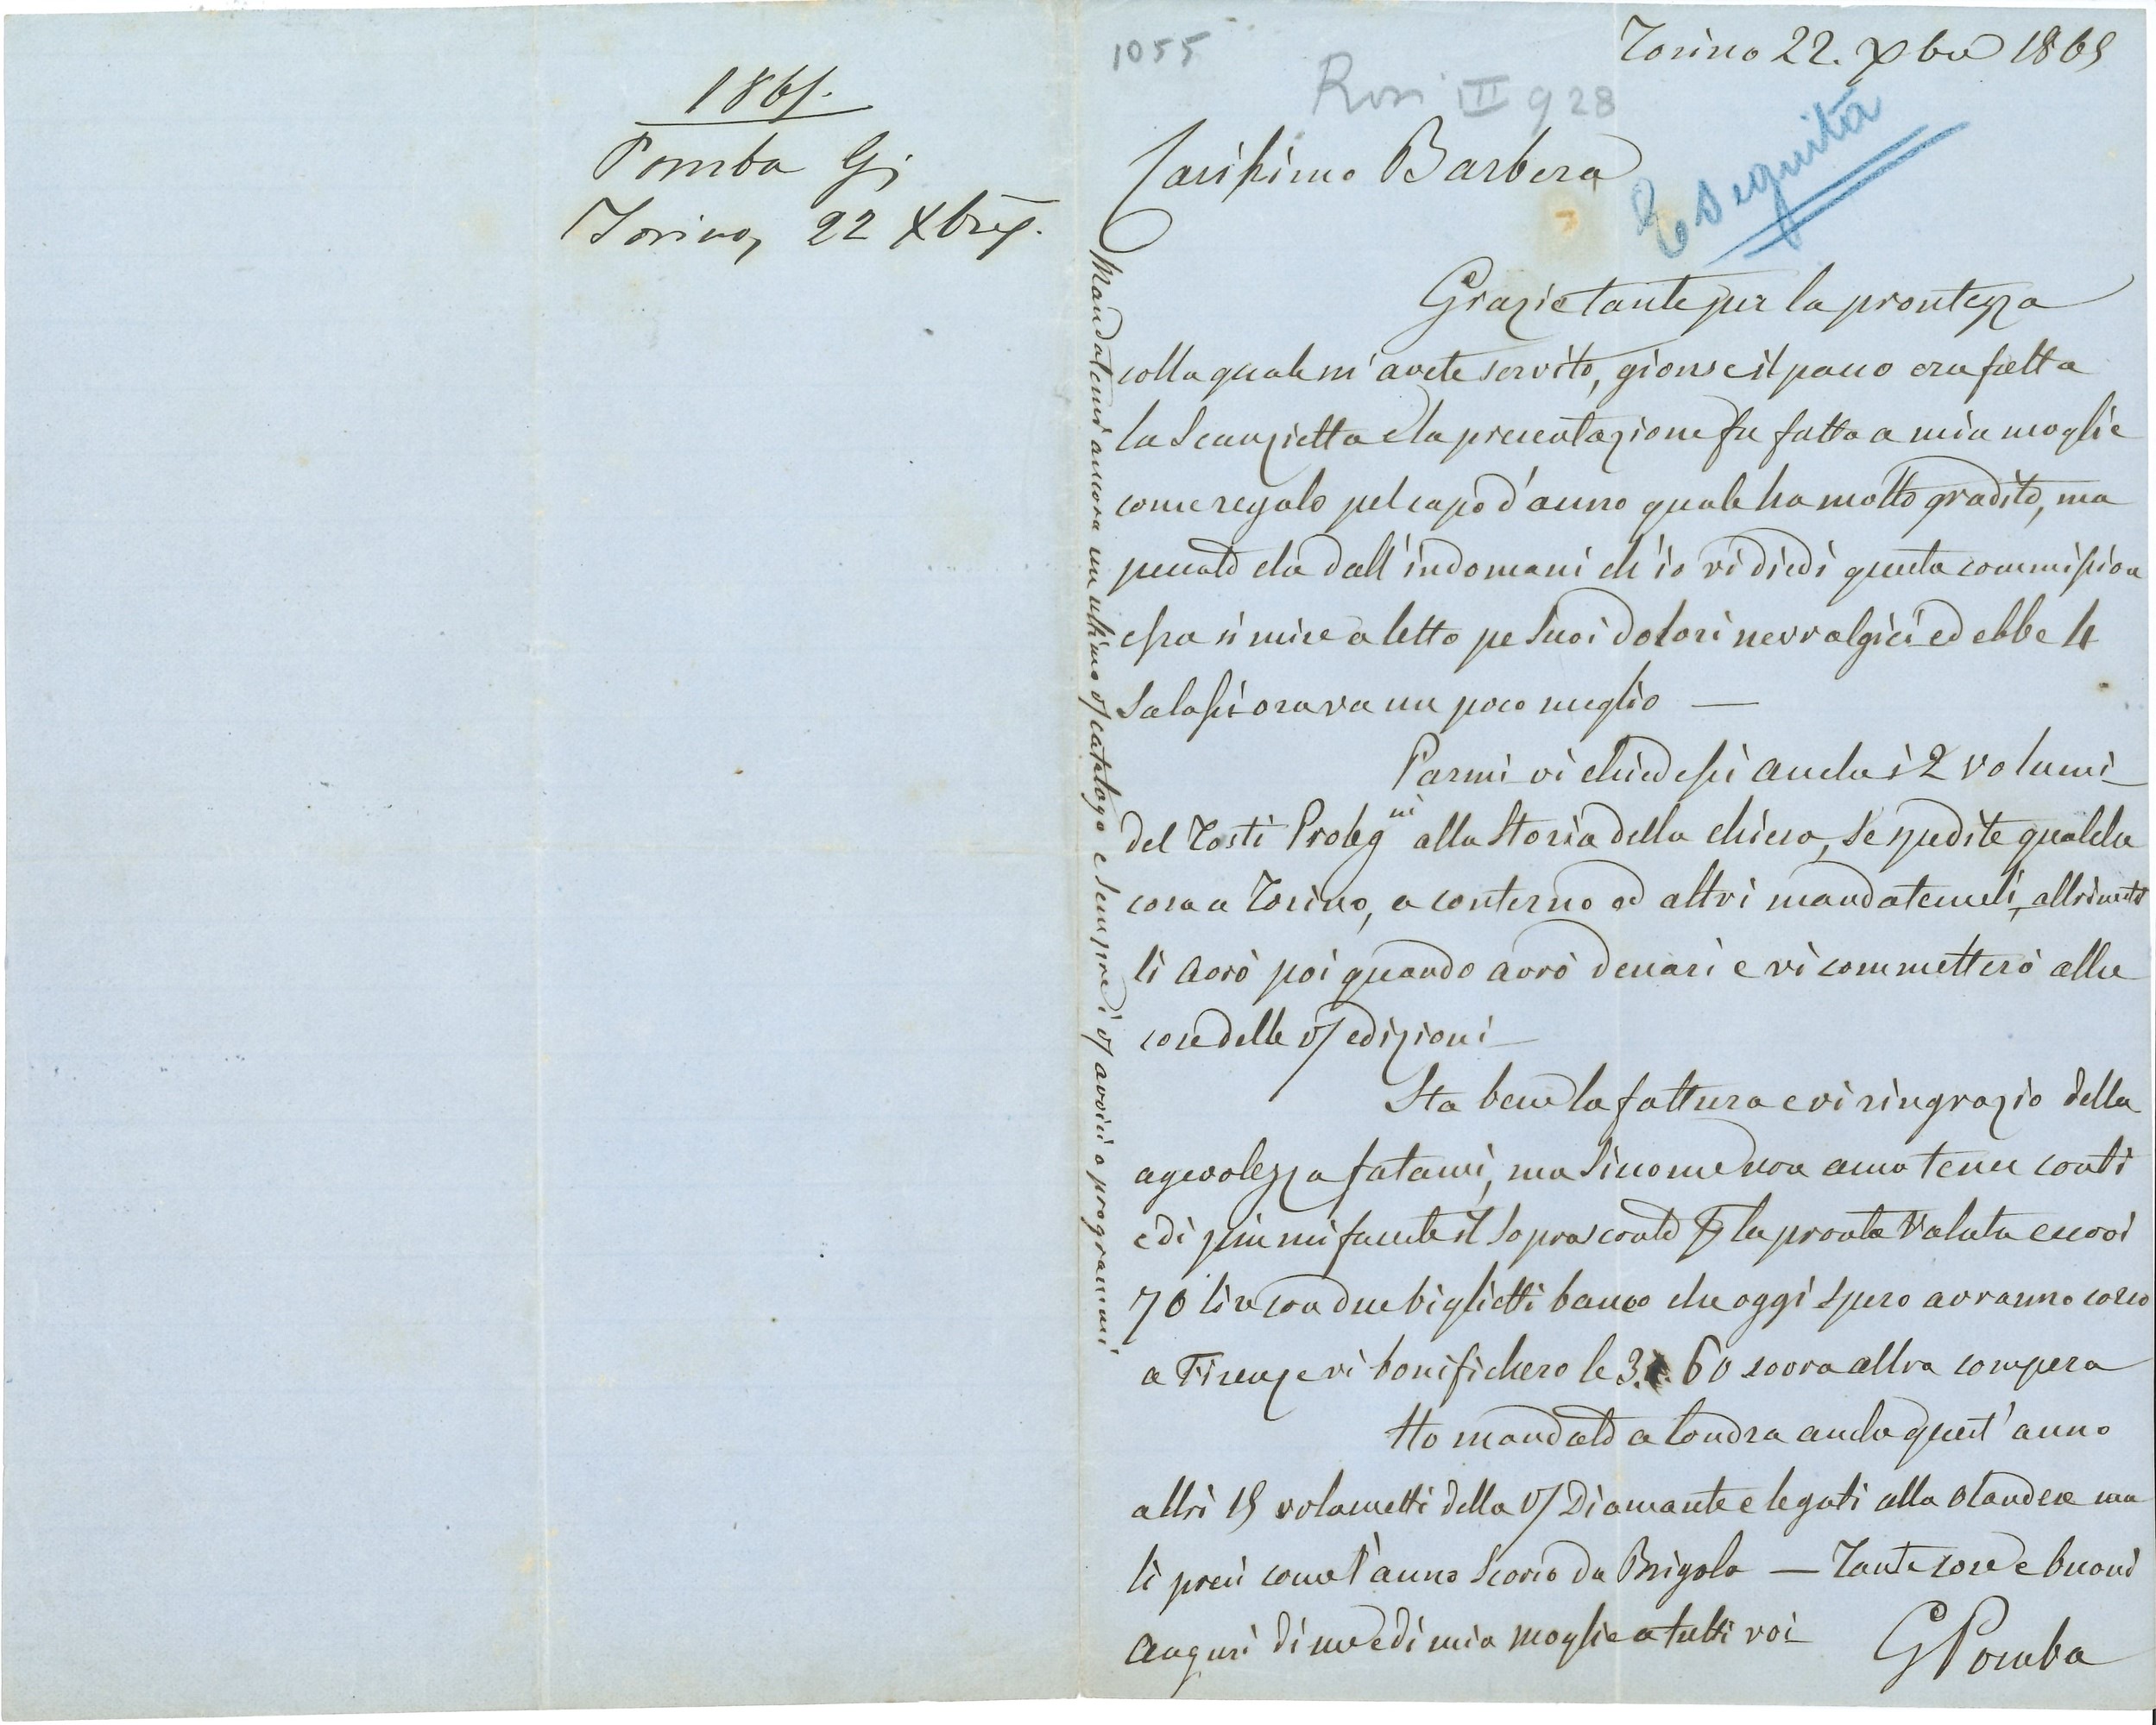 1865.
Pomba G;
Torino, 22 Xbre.
1055
Rosi III 928
Torino 22. Xbre 1865
Eseguita
Carissimo Barbera
Grazie tante per la prontezza
colla quale m'avete servito, gionse il pacco era fatta
la Scanzietta e la presentazione fu fatta a mia moglie
come regalo pel capo d'anno quale ha molto gradito, ma
peccato che dall'indomani ch'io vi diedi questa commissione
essa si mise a letto pe suoi dolori nevralgici ed ebbe 4
salassi ora va un poco meglio —
Parmi vi chiedessi anche i 2 volumi
del Tosti Proleg.ni alla Storia della chiesa, se spedite qualche
cosa a Torino, a conterno od altri mandatemeli, altrimenti
li avrò poi quando avrò denari e vi commetterò altre
cose delle v/ edizioni
Sta bene la fattura e vi ringrazio della
agevolezza fatami, ma siccome non amo tener conti
e di più mi faceste il soprasconto p la pronta valuta eccovi
70 lire con due biglietti banco che oggi spero avranno corso
a Firenze vi bonifichero le 3. 60 sovra altra compera
Ho mandato a Londra anche quest'anno
altri 15 volumetti della v/ Diamante legati alla olandese ma
li presi come l'anno scorso da Brigola — Tante cose e buoni
auguri di me e di mia moglie a tutti voi
GPomba
Mandatemi ancora un ultimo v/ catalogo e sempre i v/ avvisi o programmi